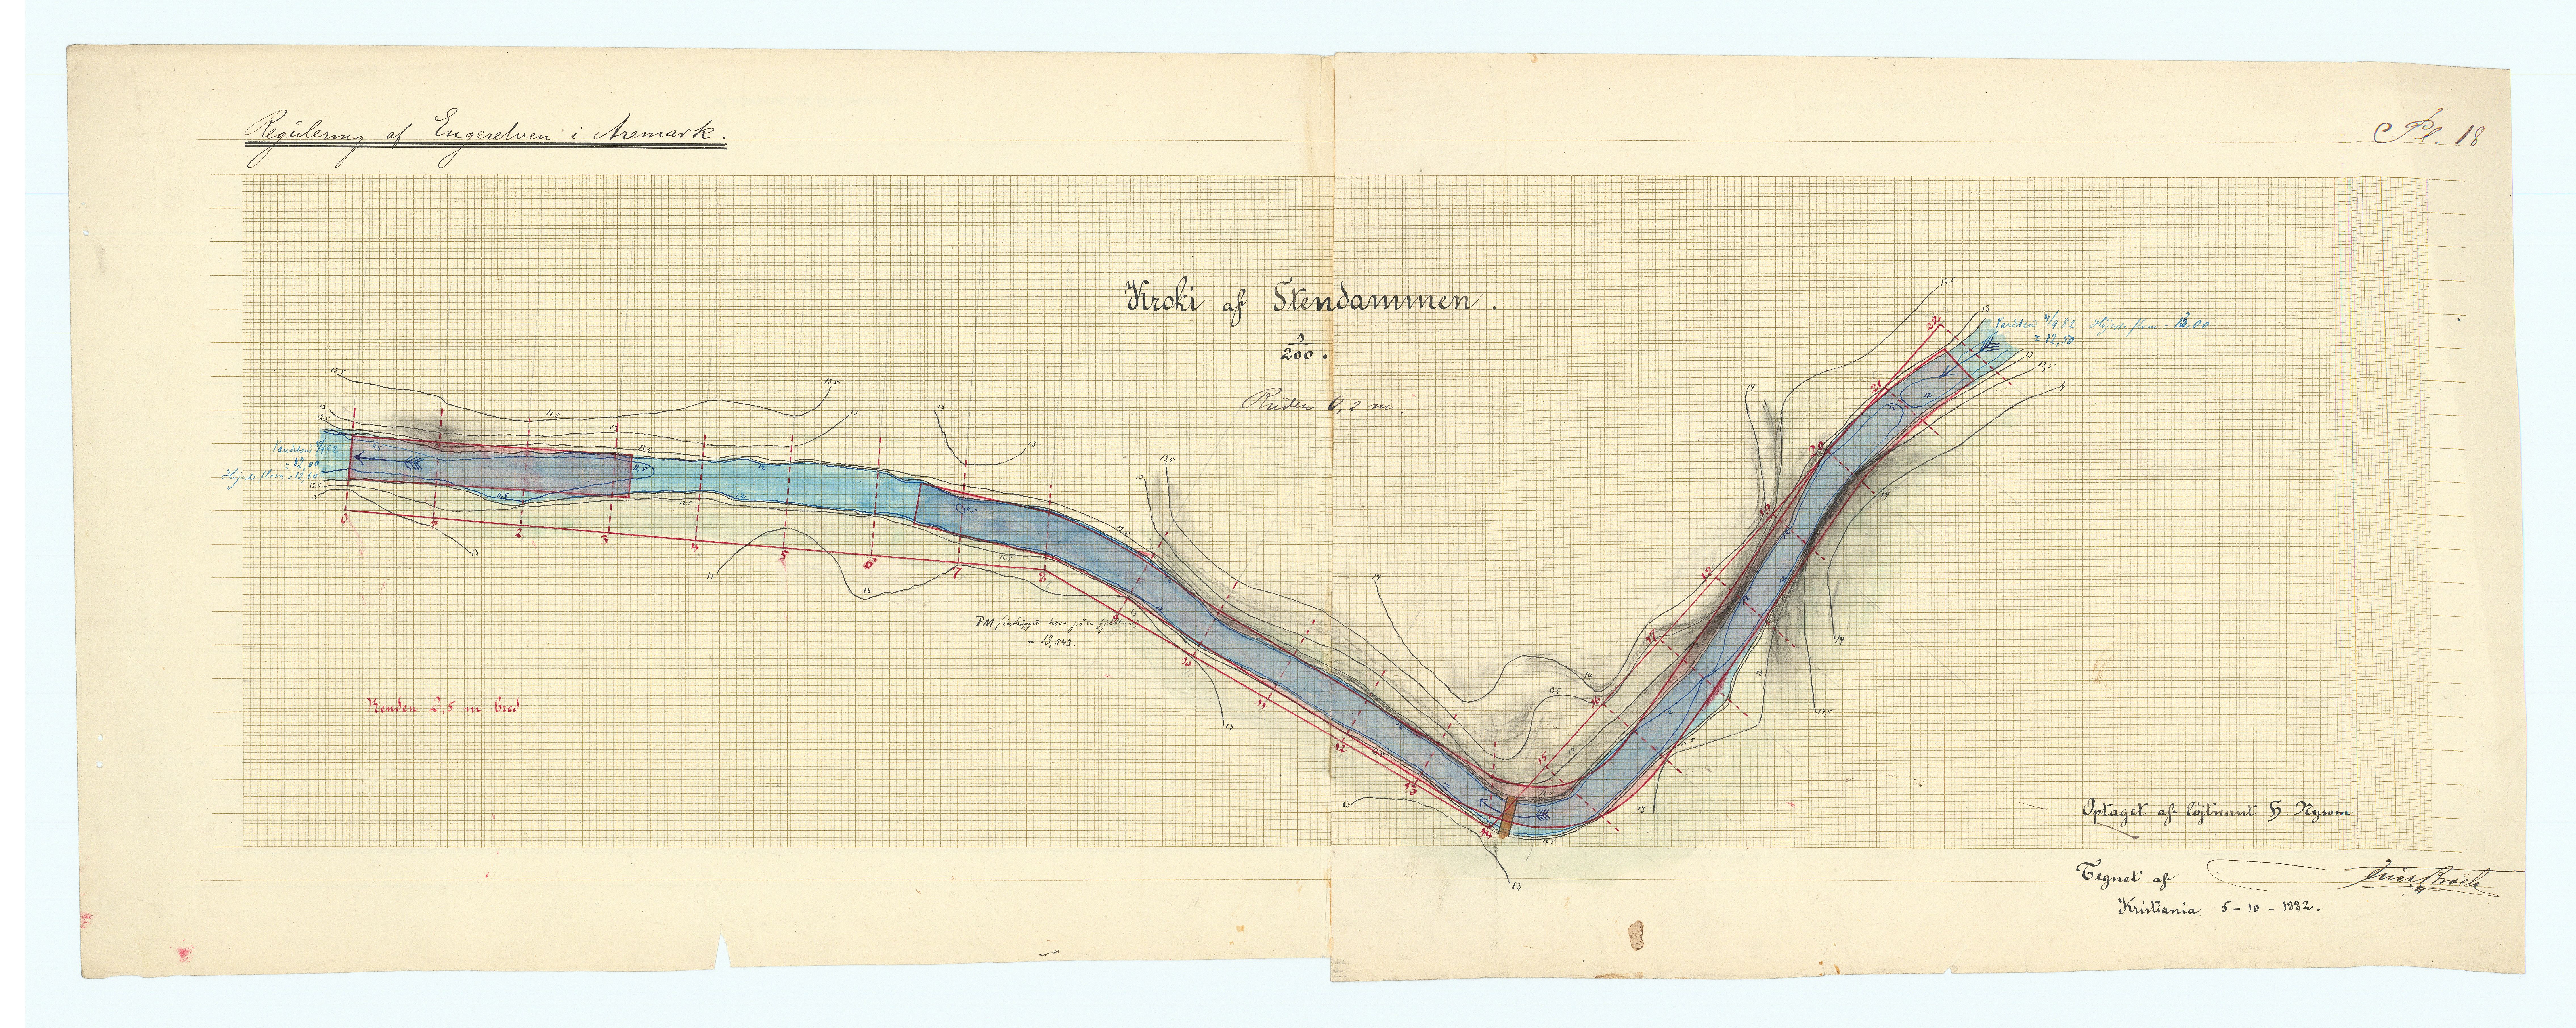 Regulering af Engerelven i Aremark.
Pl. 18
Kroki af Stendammen.
1
200.
Ruden 0,2 m.
Vandstand 4/9 82 Højeste flom = 13,00
= 12,50
Vandstand 4/9 82
= 12,00
Højeste flom = 12,60
FM
= 13,543
Renden 2,5 m bred
0 1 2 3 4 5 6 7 8 9 10 11 12 13 14 15 16 17 18 19 20 21 22
Optaget af løjtnant H. Nysom
Tegnet af
Kristiania 5-10-1882.